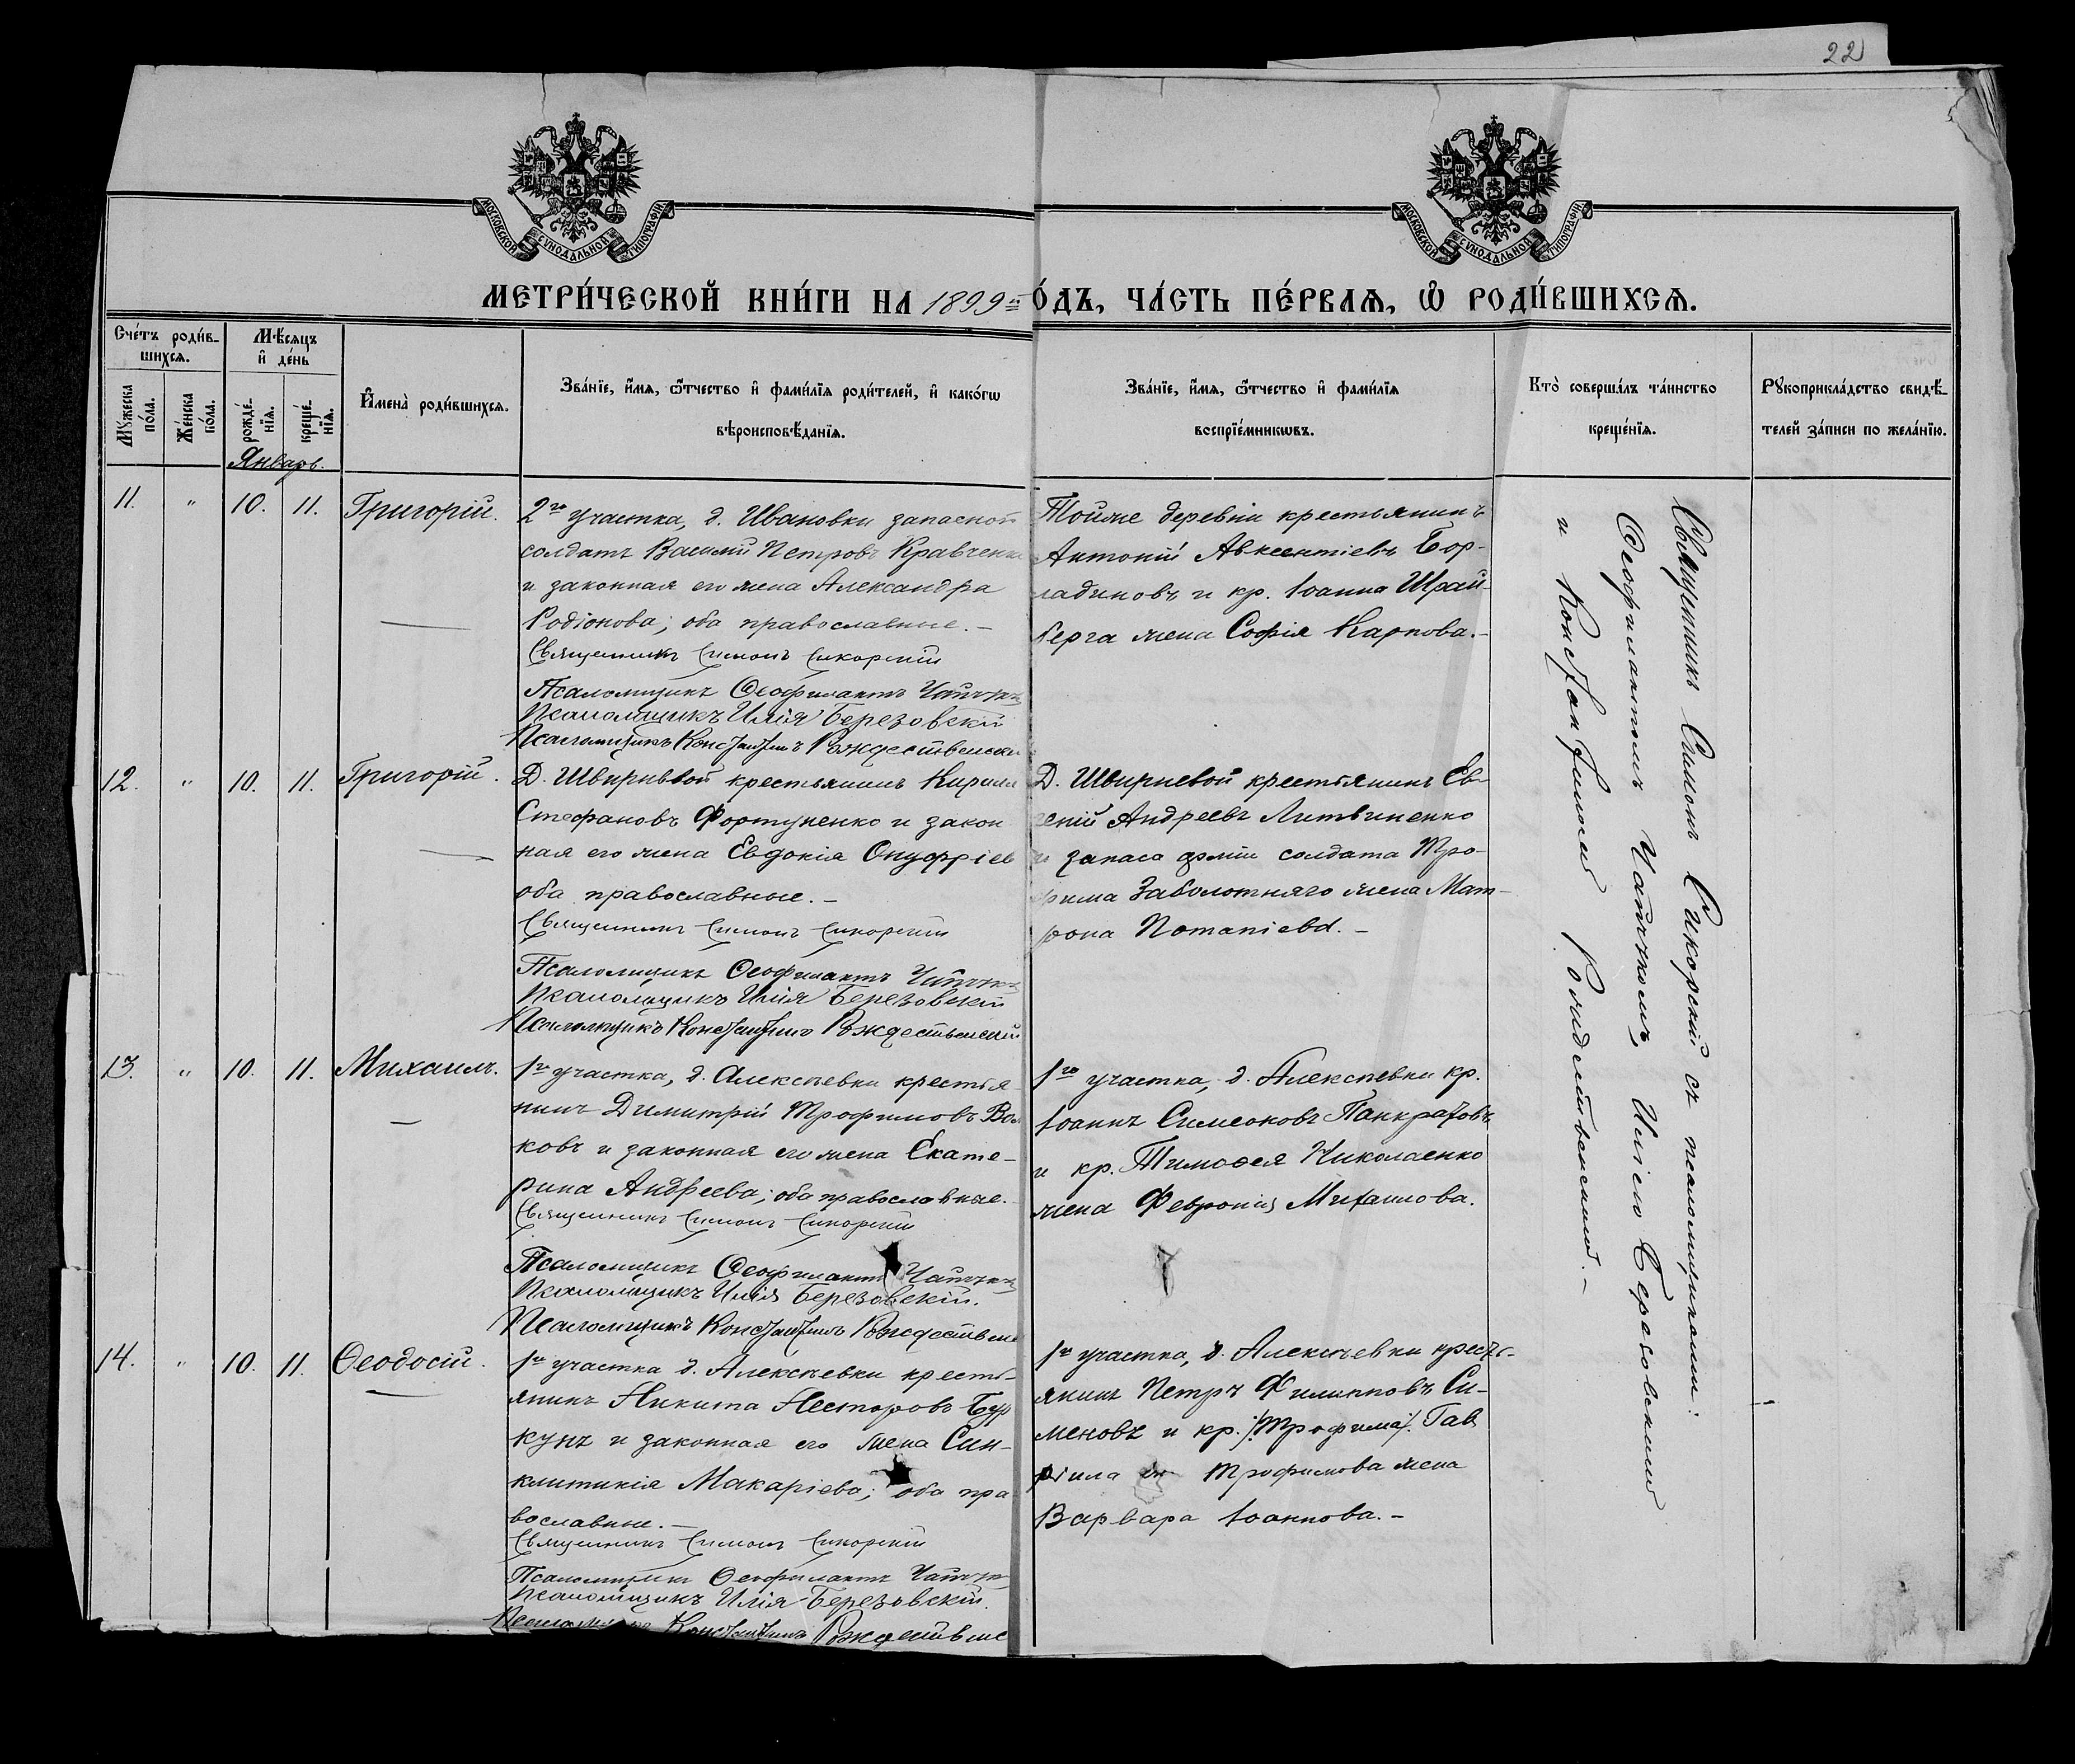 22
МОСКОВСКОЙ СѴНОДАЛЬНОЙ ТИПОГРАФІИ
МОСКОВСКОЙ СѴНОДАЛЬНОЙ ТИПОГРАФІИ
МЕТРИ́ЧЕСКОЙ КНИ́ГИ НА 1899 й О́ДЪ, ЧА́СТЬ ПЕ́РВАѦ, Ѽ РОДИ́ВШИХСѦ.
Сче́тъ роди́в-
шихсѧ.
Мꙋжеска по́ла.
Же́нска по́ла.
Мѣ́сѧцъ
и҆ де́нь
рожде́-
нїѧ.
креще́-
нїѧ.
И҆мена̀ роди́вшихсѧ.
Зва́нїе, и҆́мѧ, ѻ҆́тчество и҆ фами́лїѧ роди́телей, и҆ како́гѡ
вѣроисповѣ́данїѧ.
Зва́нїе, и҆́мѧ, ѻ҆́тчество и҆ фами́лїѧ
воспрїе́мникѡвъ.
Кто̀ соверша́лъ та́инство
креще́нїѧ.
Рꙋкоприкла́дство свидѣ́-
телей за́писи по жела́нїю.
Январь.
11. " 10. 11. Григорій.
2го участка, д. Ивановки запасной
солдатъ Василій Петровъ Кравченко
и законная его жена Александра
Родіонова; оба православные. —
Священникъ Симонъ Сикорскій
Псаломщикъ Ѳеофилактъ
Псаломщикъ Илія Березовскій
Псаломщикъ Константинъ Рождественскі
Тойже деревни крестьянинъ
Антоній Авксентіевъ Бор-
ладиновъ и кр. Іоанна Шрай-
берга жена Софія Карпова. —
12. " 10. 11. Григорій.
Д. Швиривой крестьянинъ Кирилл
Стефановъ Фортуненко и закон
ная его жена Евдокія Онуфріев
оба православные. —
Священникъ Симонъ Сикорскій
Псаломщикъ Ѳеофилактъ
Псаломщикъ Илія Березовскій
Псаломщикъ Константинъ Рождественскій
Д. Швиревой крестьянинъ Ев-
геній Андреевъ Литвиненко
и запаса арміи солдата Тро-
фима Заболотняго жена Мат-
рона Потапіева. —
13. " 10. 11. Михаилъ.
1го участка, д. Алексѣевки крестья
нинъ Димитрій Трофимовъ Вол
ковъ и законная его жена Екате-
рина Андреева; оба православные.
Священникъ Симонъ Сикорскій
Псаломщикъ Ѳеофилактъ
Псаломщикъ Илія Березовскій.
Псаломщикъ Константинъ Рождествен
1го участка, д. Алексѣевки кр.
Іоаннъ Симеоновъ Панкратовъ
и кр. Тимоѳея Николаенко
жена Февронія Михаилова.
14. " 10. 11. Ѳеодосій.
1го участка д. Алексѣевки кресть-
янинъ Никита Несторовъ Бур
кунъ и законная его жена Син-
клитикія Макаріева; оба пра
вославные. —
Священникъ Симонъ Сикорскій
Псаломщикъ Ѳеофилактъ
Псаломщикъ Илія Березовскій.
Псаломщикъ Константинъ Рождествнс
1го участка, д. Алексѣевки кресть-
янинъ Петръ Филипповъ Си-
меновъ и кр. /:Трофима:/ Гав
ріила Трофимова жена
Варвара Іоаннова. —
Священникъ Симонъ Сикорскій съ псаломщиками:
Ѳеофилактомъ Иліею Березовскимъ
и Константиномъ Рождественскимъ. —